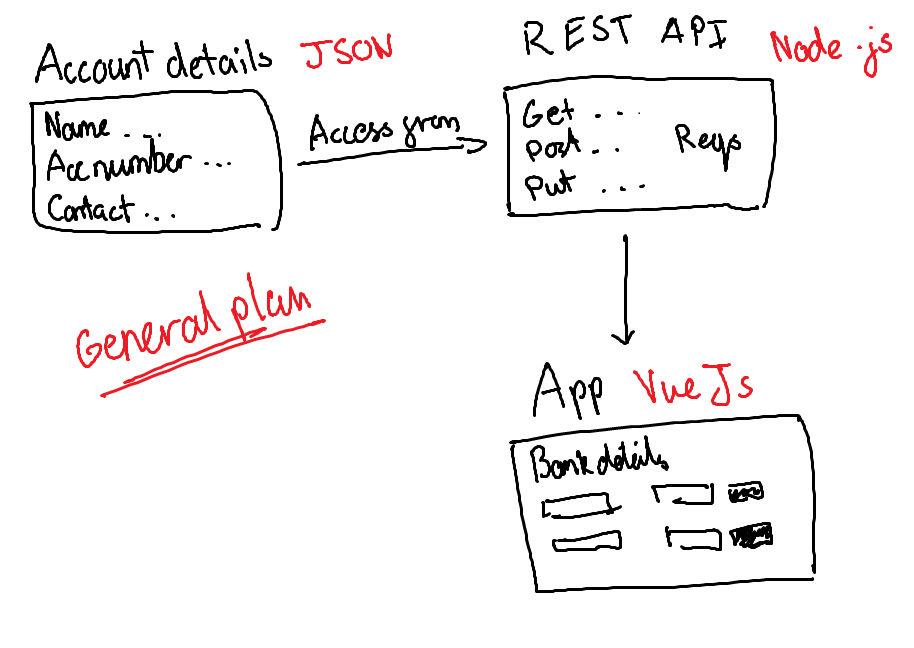 Account details JSON
Name ...
Acc number ...
Contact ...
Access from
REST API Node.js
Get ...
Post ..
Put ...
Reqs
General plan
App Vue Js
Bank details